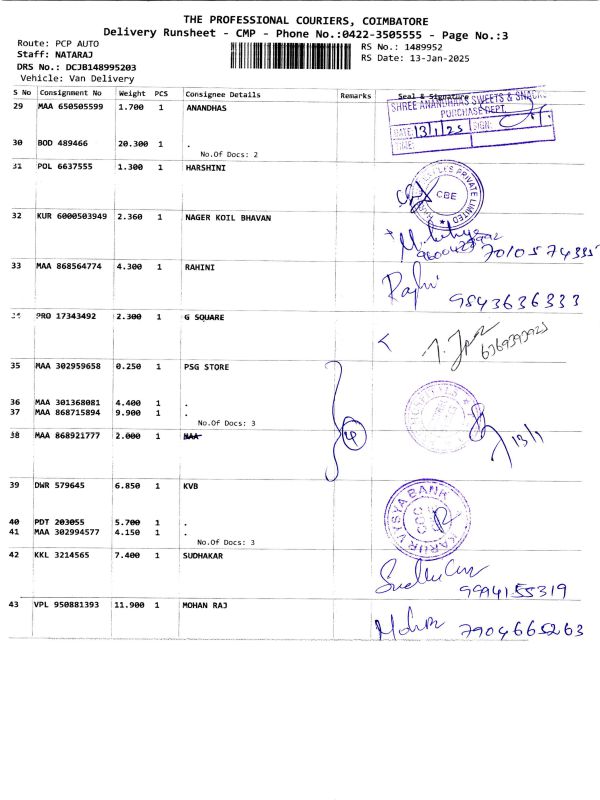 THE PROFESSIONAL COURIERS, COIMBATORE
Delivery Runsheet - CMP - Phone No.:0422-3505555 - Page No.:3
Route: PCP AUTO
RS No.: 1489952
Staff: NATARAJ
RS Date: 13-Jan-2025
DRS No.: DCJB148995203
Vehicle: Van Delivery
S No Consignment No Weight PCS Consignee Details Remarks Seal & Signature
29 MAA 650505599 1.700 1 ANANDHAS
SHREE ANANDHAAS SWEETS & SNACKS
PURCHASE DEPT.
DATE: 13/1/25 SIGN:
TIME:
30 BOD 489466 20.300 1 .
No.Of Docs: 2
31 POL 6637555 1.300 1 HARSHINI
PRIVATE LIMITED
CBE
32 KUR 6000503949 2.360 1 NAGER KOIL BHAVAN
7010574335
33 MAA 868564774 4.300 1 RAHINI
9843636333
34 PRO 17343492 2.300 1 G SQUARE
6369393923
35 MAA 302959658 0.250 1 PSG STORE
36 MAA 301368081 4.400 1 .
37 MAA 868715894 9.900 1 .
No.Of Docs: 3
38 MAA 868921777 2.000 1 NAA
4
13/1
39 DWR 579645 6.850 1 KVB
KARUR VYSYA BANK
40 PDT 203055 5.700 1 .
41 MAA 302994577 4.150 1 .
No.Of Docs: 3
42 KKL 3214565 7.400 1 SUDHAKAR
9994155319
43 VPL 950881393 11.900 1 MOHAN RAJ
7904665263